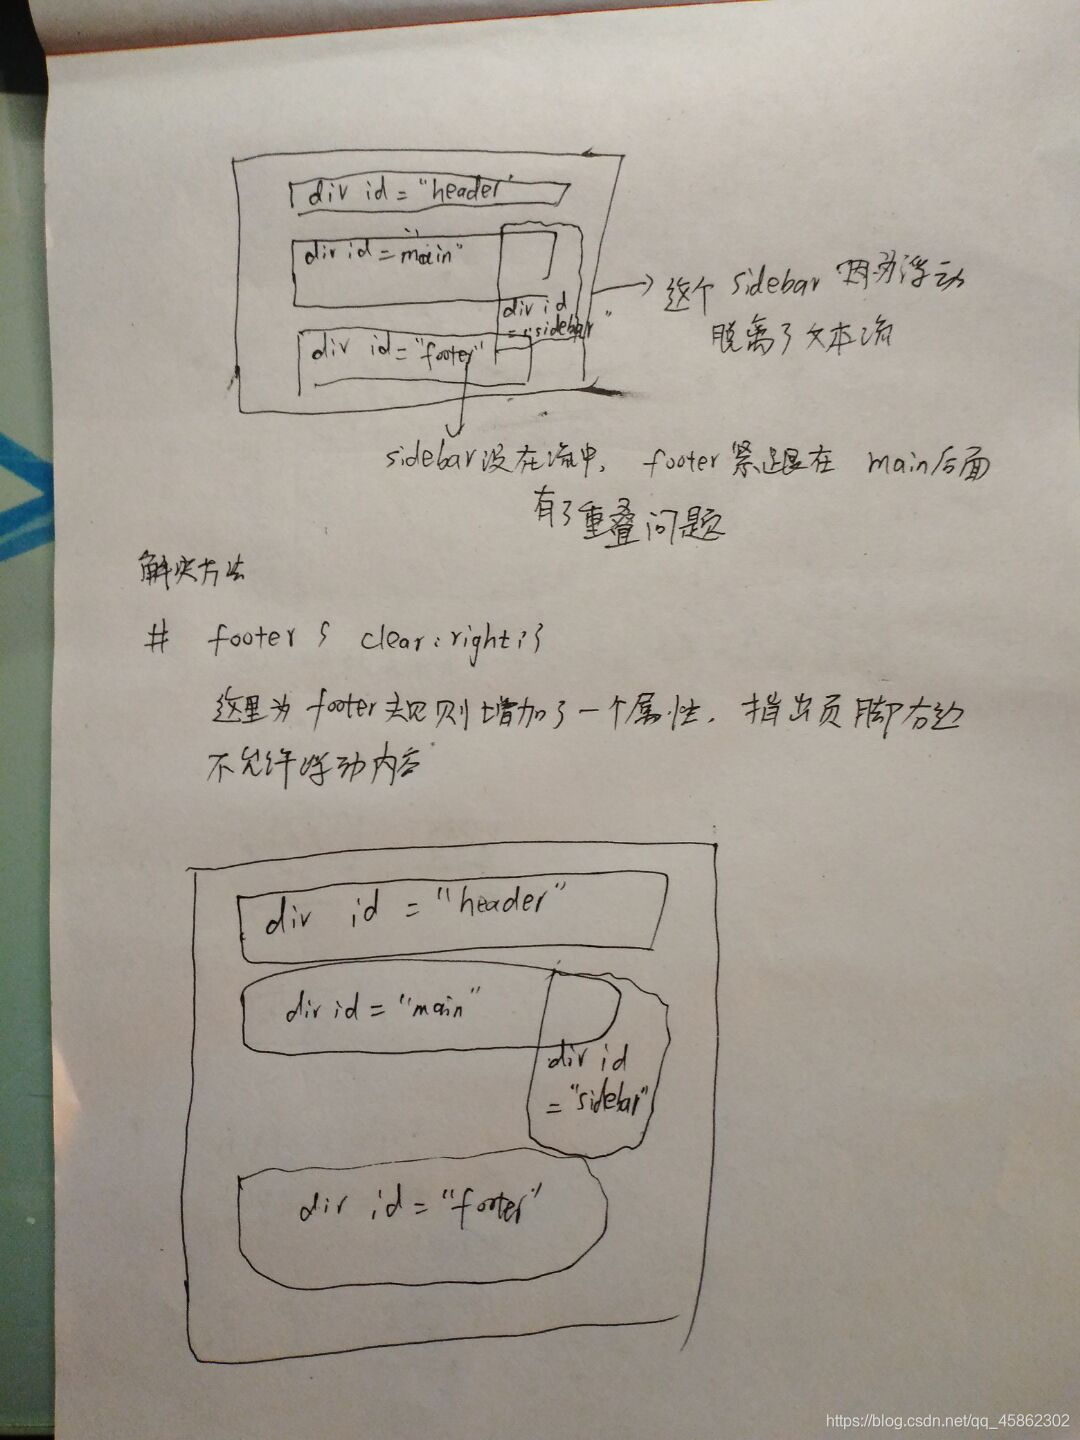 div id = "header"
div id = "main"
div id
= "sidebar"
div id = "footer"
这个 sidebar 因为浮动
脱离了文本流
sidebar没在流中, footer紧跟在 main后面
有了重叠问题
解决方法
# footer { clear:right;}
这里为 footer 规则增加了一个属性, 指出页脚右边
不允许浮动内容
div id = "header"
div id = "main"
div id
= "sidebar"
div id = "footer"
https://blog.csdn.net/qq_45862302